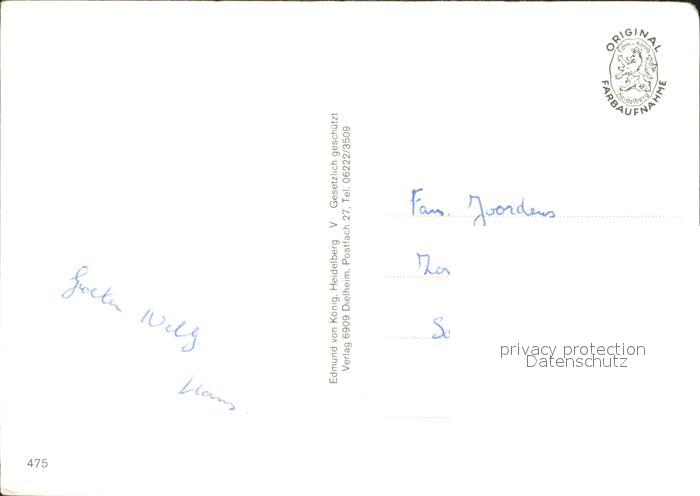 ORIGINAL
Edm. König
Heidelberg
FARBAUFNAHME
Edmund von König, Heidelberg V Gesetzlich geschützt
Verlag 6909 Dielheim, Postfach 27, Tel. 06222/3509
Fam. Joordens
Zor
Sc
privacy protection
Datenschutz
Groeten Willy
Hans
475